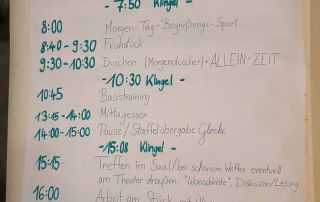 - 7:50 Klingel -
8:00 Morgen-Tag-Begrüßungs-Sport
8:40 - 9:30 Frühstück
9:30 - 10:30 Duschen (Morgenduscher) + ALLEIN-ZEIT
- 10:30 Klingel -
10:45 Basistraining
13:15 - 14:00 Mittagessen
14:00 - 15:00 Pause / Staffelübergabe Glocke
- 15:08 Klingel -
15:15 Treffen im Saal / bei schönem Wetter eventuell
am Theater draußen: "Wunschkiste", Diskussion/Lesung
16:00 Arbeit am Stück mit